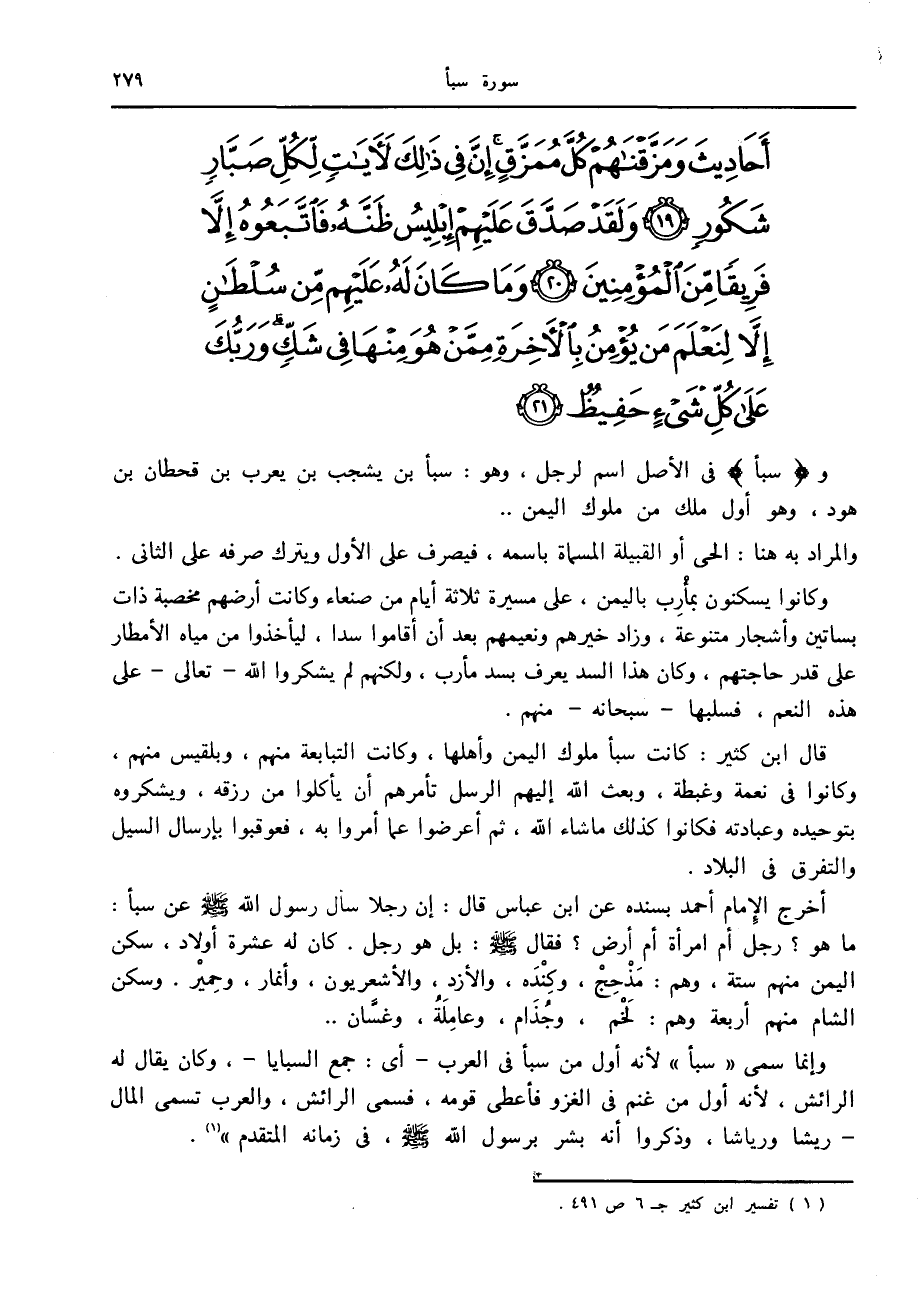 سورة سبأ ٢٧٩
أَحَادِيثَ وَمَزَّقْنَٰهُمْ كُلَّ مُمَزَّقٍ ۚ إِنَّ فِى ذَٰلِكَ لَءَايَٰتٍ لِّكُلِّ صَبَّارٍ
شَكُورٍ ﴿١٩﴾ وَلَقَدْ صَدَّقَ عَلَيْهِمْ إِبْلِيسُ ظَنَّهُۥ فَٱتَّبَعُوهُ إِلَّا
فَرِيقًا مِّنَ ٱلْمُؤْمِنِينَ ﴿٢٠﴾ وَمَا كَانَ لَهُۥ عَلَيْهِم مِّن سُلْطَٰنٍ
إِلَّا لِنَعْلَمَ مَن يُؤْمِنُ بِٱلْءَاخِرَةِ مِمَّنْ هُوَ مِنْهَا فِى شَكٍّ ۗ وَرَبُّكَ
عَلَىٰ كُلِّ شَىْءٍ حَفِيظٌ ﴿٢١﴾
و ﴿ سبأ ﴾ فى الأصل اسم لرجل ، وهو : سبأ بن يشجب بن يعرب بن قحطان بن
هود ، وهو أول ملك من ملوك اليمن ..
والمراد به هنا : الحى أو القبيلة المسماة باسمه ، فيصرف على الأول ويترك صرفه على الثانى .
وكانوا يسكنون بمأْرِب باليمن ، على مسيرة ثلاثة أيام من صنعاء وكانت أرضهم مخصبة ذات
بساتين وأشجار متنوعة ، وزاد خيرهم ونعيمهم بعد أن أقاموا سدا ، ليأخذوا من مياه الأمطار
على قدر حاجتهم ، وكان هذا السد يعرف بسد مأرب ، ولكنهم لم يشكروا الله – تعالى – على
هذه النعم ، فسلبها – سبحانه – منهم .
قال ابن كثير : كانت سبأ ملوك اليمن وأهلها ، وكانت التبابعة منهم ، وبلقيس منهم ،
وكانوا فى نعمة وغبطة ، وبعث الله إليهم الرسل تأمرهم أن يأكلوا من رزقه ، ويشكروه
بتوحيده وعبادته فكانوا كذلك ماشاء الله ، ثم أعرضوا عما أمروا به ، فعوقبوا بإرسال السيل
والتفرق فى البلاد .
أخرج الإمام أحمد بسنده عن ابن عباس قال : إن رجلا سأل رسول الله ﷺ عن سبأ :
ما هو ؟ رجل أم امرأة أم أرض ؟ فقال ﷺ : بل هو رجل . كان له عشرة أولاد ، سكن
اليمن منهم ستة ، وهم : مَذْحِجْ ، وكِنْدَه ، والأزد ، والأشعريون ، وأنمار ، وحِميْر . وسكن
الشام منهم أربعة وهم : لَخْم ، وجُذَام ، وعامِلَةُ ، وغسَّان ..
وإنما سمى « سبأ » لأنه أول من سبأ فى العرب – أى : جمع السبايا – ، وكان يقال له
الرائش ، لأنه أول من غنم فى الغزو فأعطى قومه ، فسمى الرائش ، والعرب تسمى المال
– ريشا ورياشا ، وذكروا أنه بشر برسول الله ﷺ ، فى زمانه المتقدم »(١) .
( ١ ) تفسير ابن كثير جـ ٦ ص ٤٩١ .